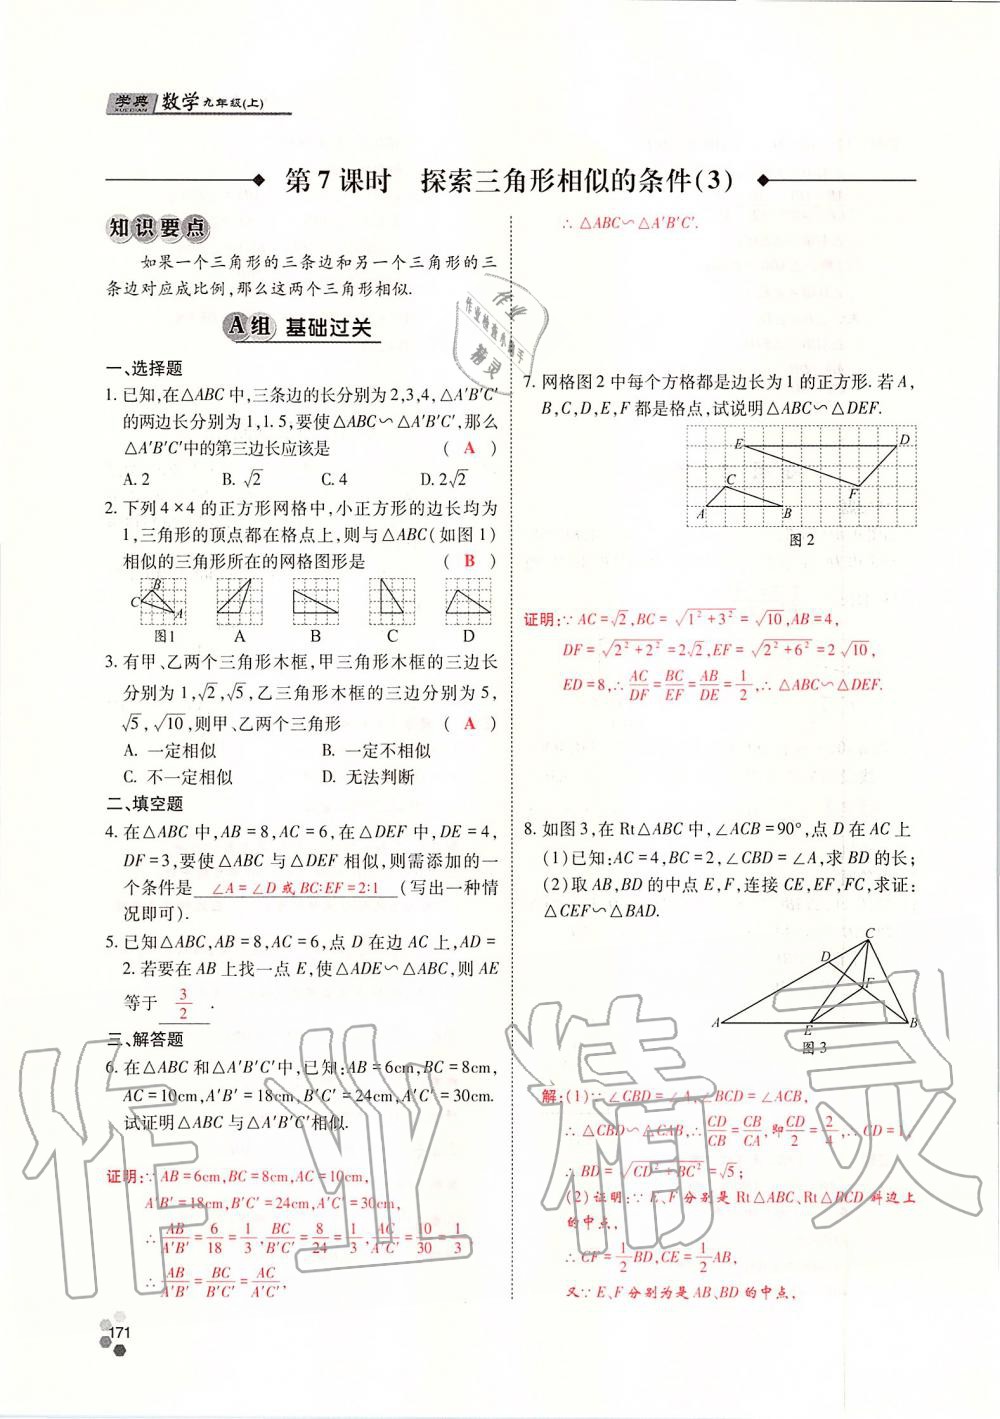 学典 数学 九年级(上)
XUEDIAN
第7课时 探索三角形相似的条件(3)
知识要点
如果一个三角形的三条边和另一个三角形的三
条边对应成比例,那么这两个三角形相似.
A组 基础过关
一、选择题
1. 已知,在△ABC中,三条边的长分别为2,3,4,△A′B′C′
的两边长分别为1,1.5,要使△ABC∽△A′B′C′,那么
△A′B′C′中的第三边长应该是 ( A )
A. 2 B. √2 C. 4 D. 2√2
2. 下列4×4的正方形网格中,小正方形的边长均为
1,三角形的顶点都在格点上,则与△ABC(如图1)
相似的三角形所在的网格图形是 ( B )
B
C
A
图1 A B C D
3. 有甲、乙两个三角形木框,甲三角形木框的三边长
分别为1,√2,√5,乙三角形木框的三边分别为5,
√5,√10,则甲、乙两个三角形 ( A )
A. 一定相似 B. 一定不相似
C. 不一定相似 D. 无法判断
二、填空题
4. 在△ABC中,AB=8,AC=6,在△DEF中,DE=4,
DF=3,要使△ABC与△DEF相似,则需添加的一
个条件是 ∠A=∠D或BC:EF=2:1 (写出一种情
况即可).
5. 已知△ABC,AB=8,AC=6,点D在边AC上,AD=
2.若要在AB上找一点E,使△ADE∽△ABC,则AE
等于 3/2 .
三、解答题
6. 在△ABC和△A′B′C′中,已知:AB=6cm,BC=8cm,
AC=10cm,A′B′=18cm,B′C′=24cm,A′C′=30cm.
试证明△ABC与△A′B′C′相似.
证明:∵AB=6cm,BC=8cm,AC=10cm,
A′B′=18cm,B′C′=24cm,A′C′=30cm,
∴AB/A′B′=6/18=1/3,BC/B′C′=8/24=1/3,AC/A′C′=10/30=1/3,
∴AB/A′B′=BC/B′C′=AC/A′C′,
171
∴△ABC∽△A′B′C′.
7. 网格图2中每个方格都是边长为1的正方形.若A,
B,C,D,E,F都是格点,试说明△ABC∽△DEF.
E D
C F
A B
图2
证明:∵AC=√2,BC=√(1²+3²)=√10,AB=4,
DF=√(2²+2²)=2√2,EF=√(2²+6²)=2√10,
ED=8,∴AC/DF=BC/EF=AB/DE=1/2,∴△ABC∽△DEF.
8. 如图3,在Rt△ABC中,∠ACB=90°,点D在AC上
(1)已知:AC=4,BC=2,∠CBD=∠A,求BD的长;
(2)取AB,BD的中点E,F,连接CE,EF,FC,求证:
△CEF∽△BAD.
C
D
F
A E B
图3
解:(1)∵∠CBD=∠A,∠BCD=∠ACB,
∴△CBD∽△CAB,∴CD/CB=CB/CA,即CD/2=2/4,∴CD=1,
∴BD=√(CD²+BC²)=√5;
(2)证明:∵E、F分别是Rt△ABC、Rt△BCD斜边上
的中点,
∴CF=1/2BD,CE=1/2AB,
又∵E、F分别为是AB、BD的中点,
作业
作业检查小助手
精灵
作业精灵